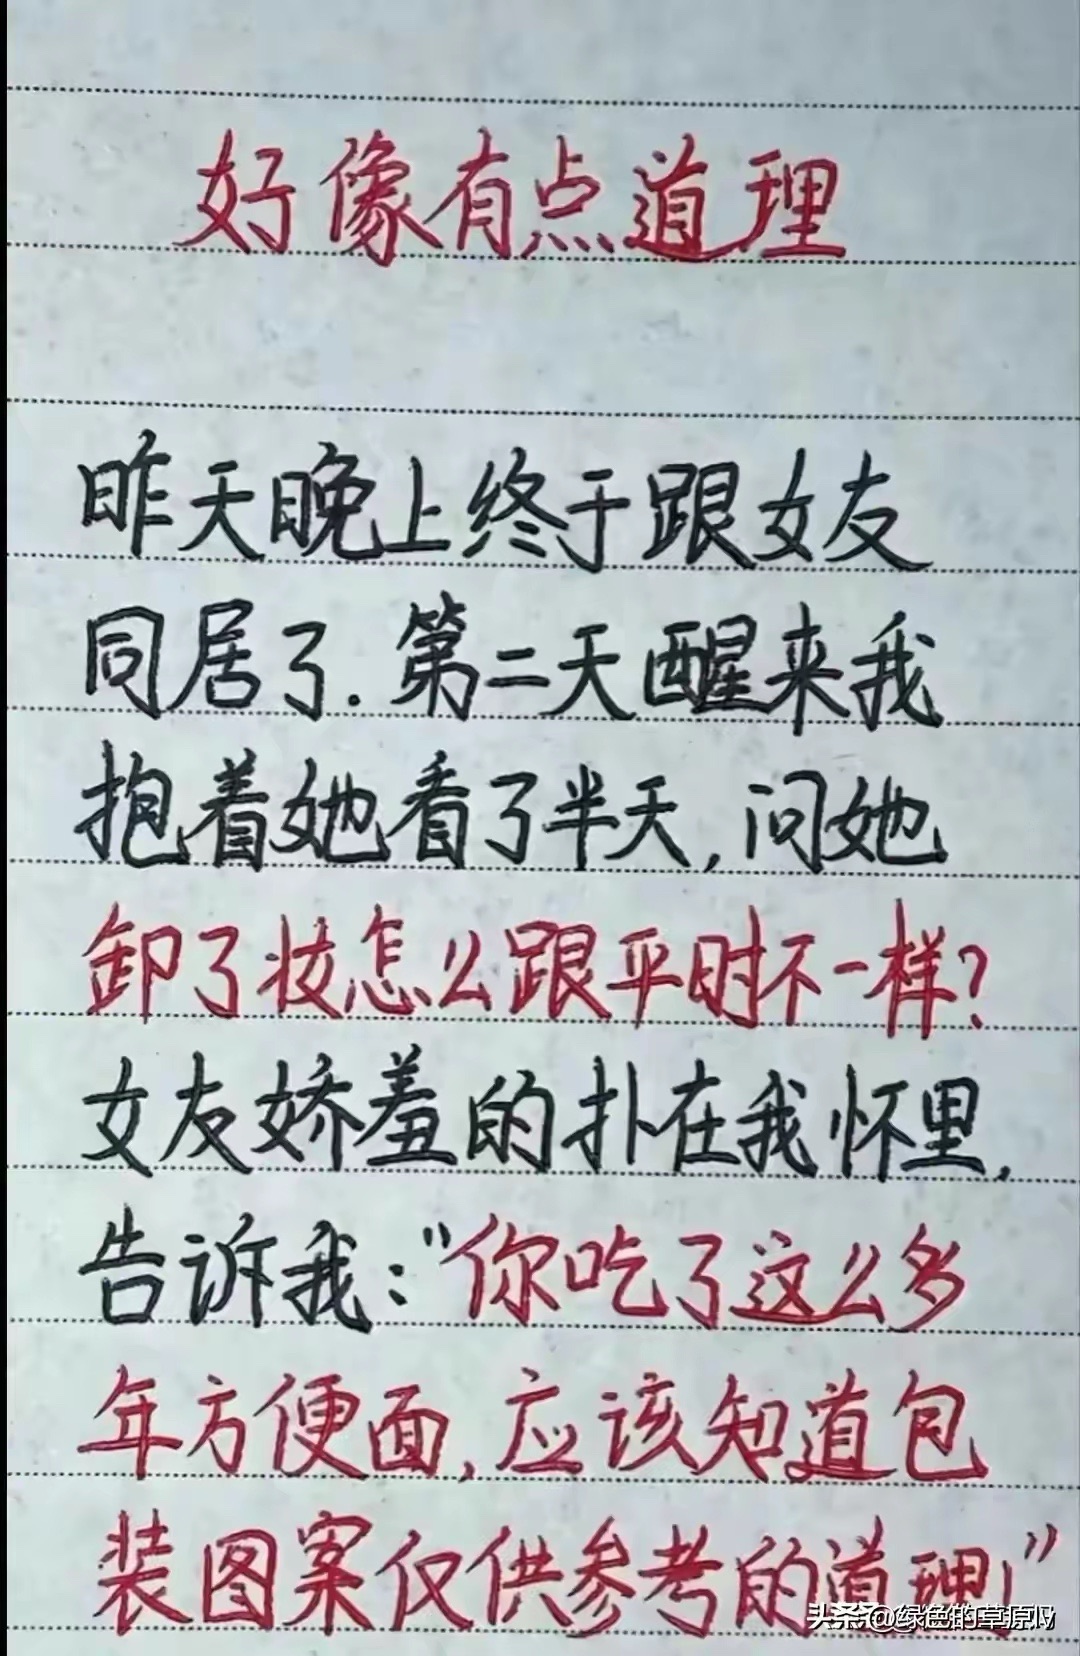 好像有点道理
昨天晚上终于跟女友
同居了.第二天醒来我
抱着她看了半天,问她
卸了妆怎么跟平时不一样?
女友娇羞的扑在我怀里,
告诉我:"你吃了这么多
年方便面,应该知道包
装图案仅供参考的道理"
头条@绿色的草原